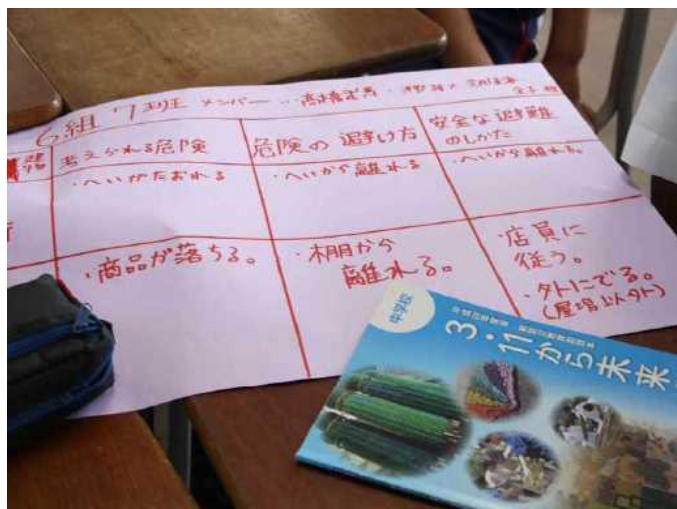 6組 7班 メンバー
考えられる危険
危険の避け方
安全な避難
のしかた
・へいがたおれる
・へいから離れる
・へいから離れる。
・商品が落ちる。
・棚から
離れる。
・店員に
従う。
・外にでる。
中学校
3・11から未来